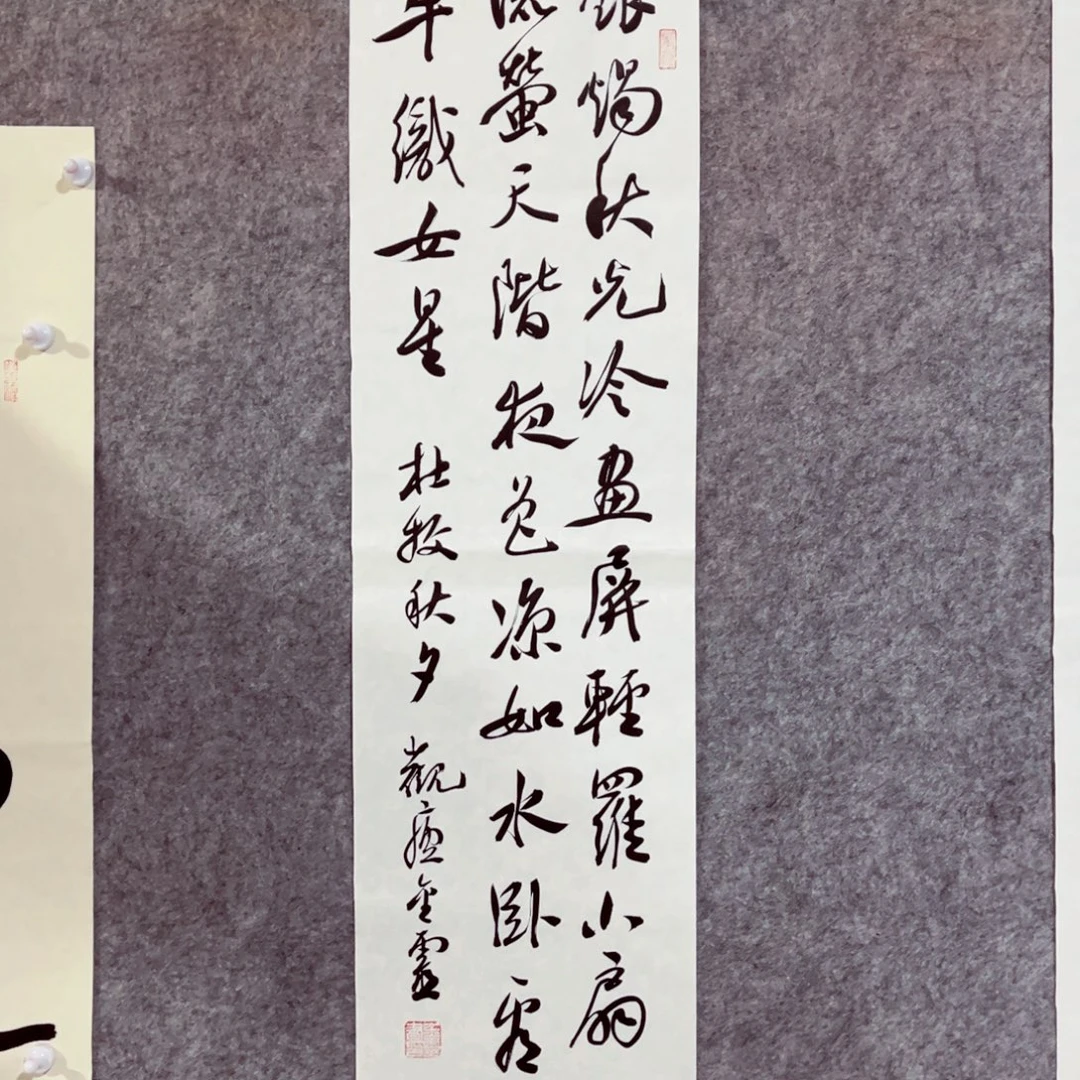 銀燭秋光冷畫屏輕羅小扇
流螢天階夜色涼如水卧看
牛織女星 杜牧秋夕 觀